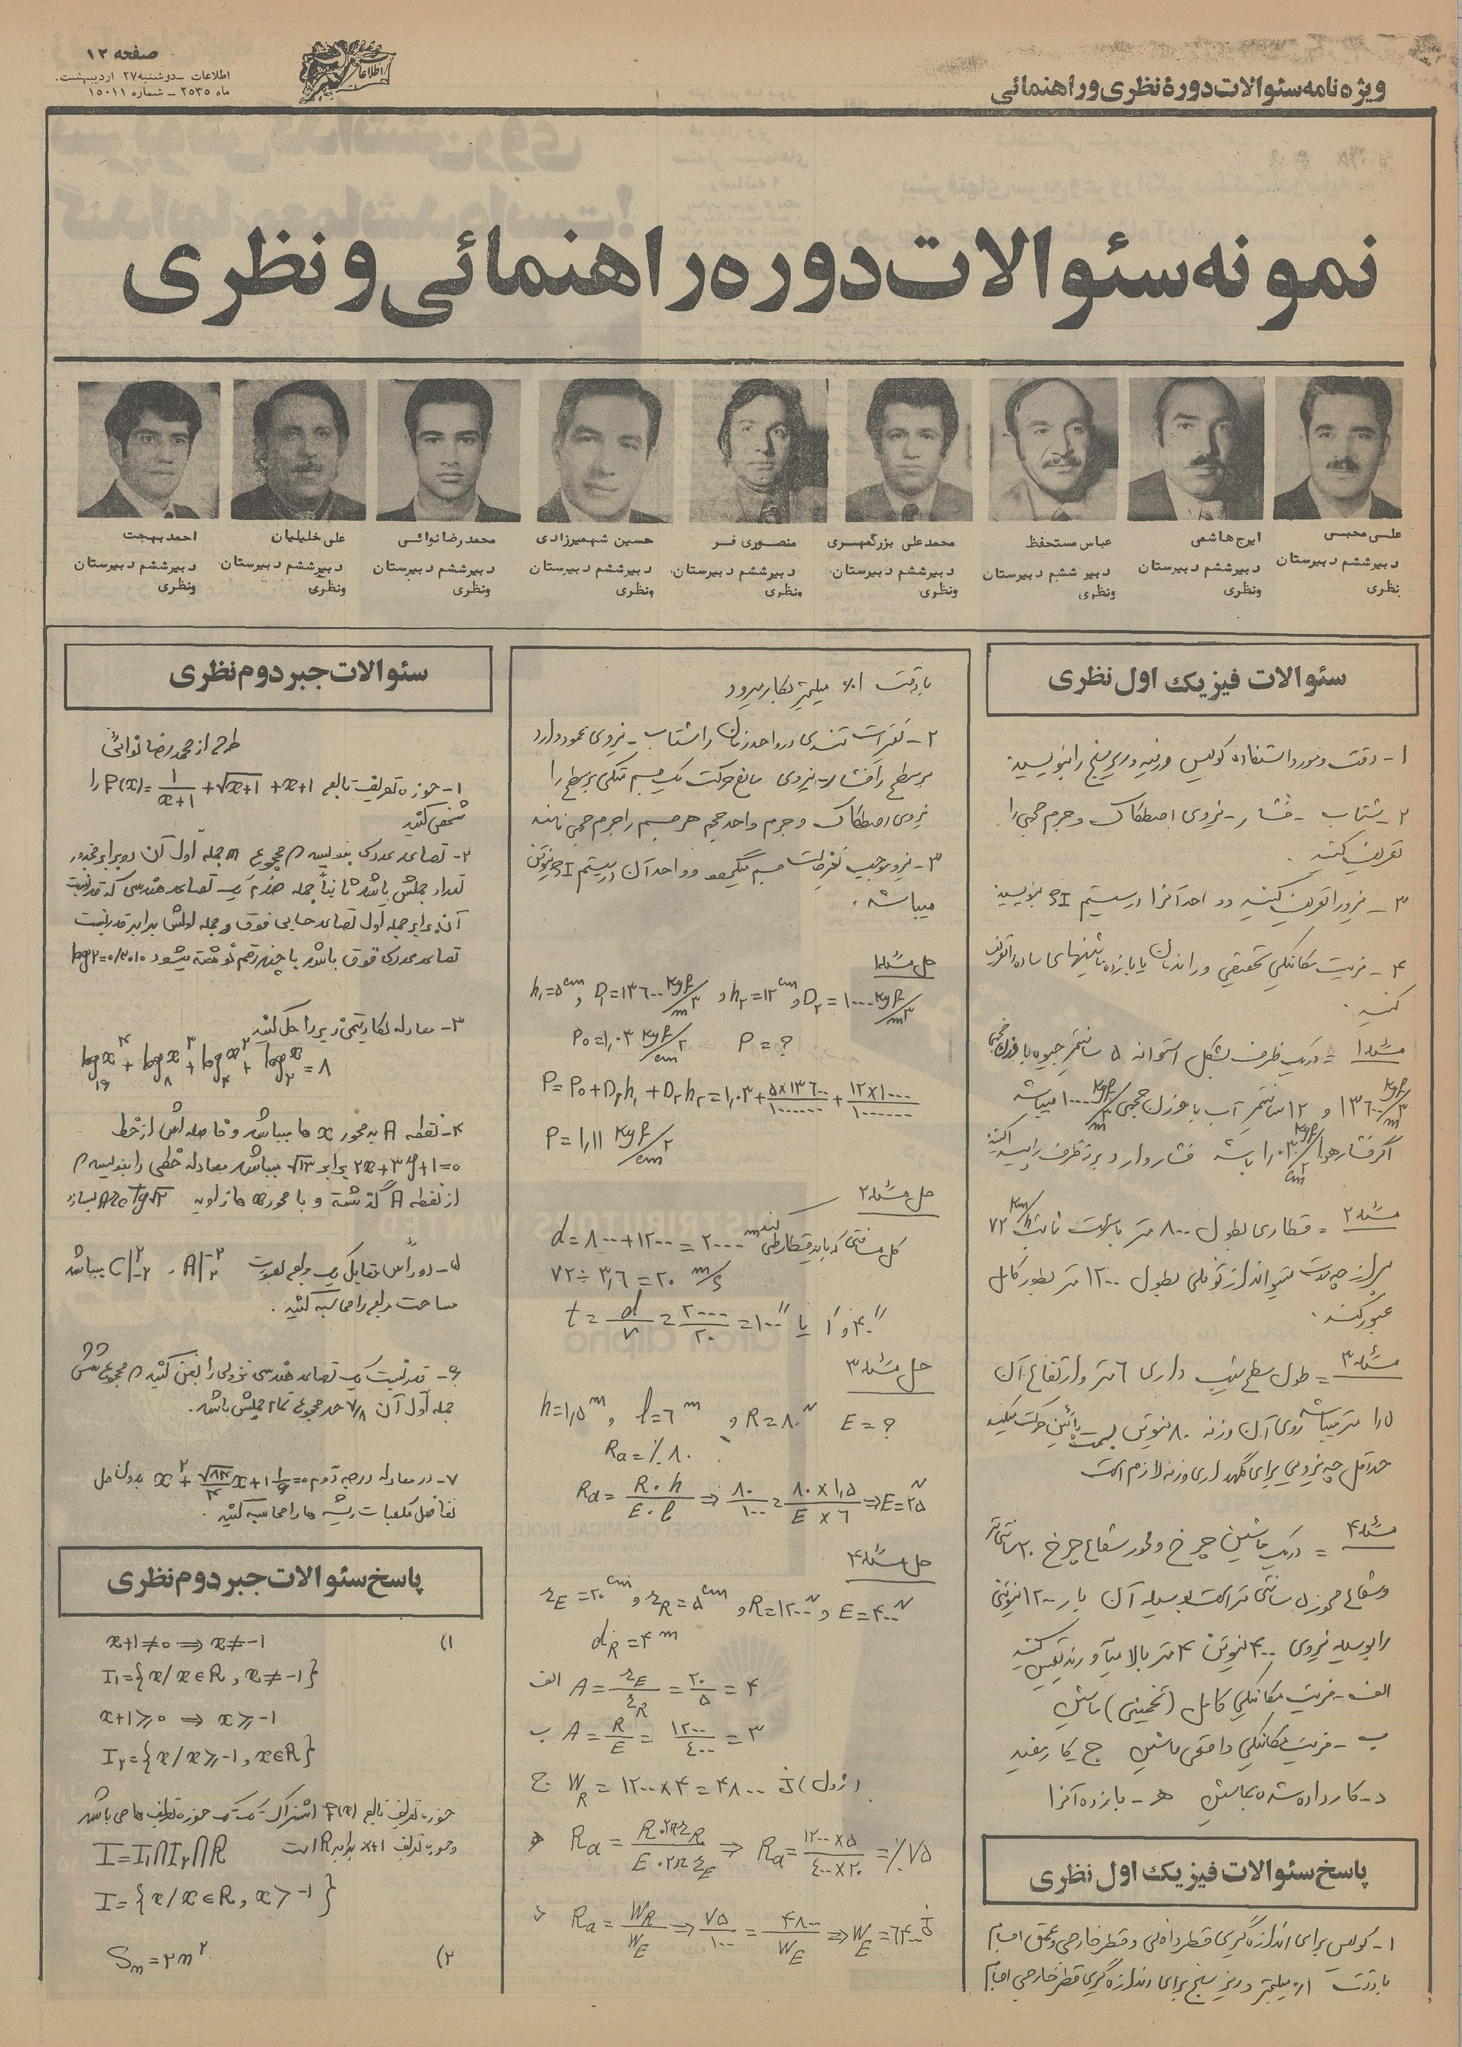 صفحه ۱۲
اطلاعات ـ دوشنبه ۲۷ اردیبهشت
ماه ۲۵۳۵ ـ شماره ۱۵۰۱۱
اطلاعات
ویژه نامه سئوالات دورهٔ نظری و راهنمائی
نمونه سئوالات دوره راهنمائی و نظری
علی محبی
دبیر ششم دبیرستان
نظری
ایرج هاشمی
دبیر ششم دبیرستان
ونظری
عباس مستحفظ
دبیر ششم دبیرستان
ونظری
محمدعلی بزرگمهری
دبیر ششم دبیرستان
ونظری
منصوری فر
دبیر ششم دبیرستان
ونظری
حسین شهمیرزادی
دبیر ششم دبیرستان
ونظری
محمد رضا نوائی
دبیر ششم دبیرستان
ونظری
علی خلیلیان
دبیر ششم دبیرستان
ونظری
احمد بهجت
دبیر ششم دبیرستان
ونظری
سئوالات فیزیک اول نظری
۱- دقت و مورد استفاده کولیس ورنیه و ریزسنج را بنویسید
۲- شتاب - فشار - نیروی اصطکاک و جرم حجمی را
تعریف کنید.
۳- نیرو را تعریف کنید و واحد آنرا در سیستم SI بنویسید
۴- مزیت مکانیکی حقیقی و راندمان یا بازده ماشینهای ساده را تعریف
کنید.
مسئله ۱ = در یک ظرف بشکل استوانه ۵ سانتیمتر جیوه با وزن حجمی
۱۳۶۰۰ kgf/m۳ و ۱۲ سانتیمتر آب با وزن حجمی ۱۰۰۰ kgf/m۳ میباشد
اگر فشار هوا ۱٫۰۳ kgf/cm۲ باشد فشار وارد بر ته ظرف را پیدا کنید
مسئله ۲ = قطاری بطول ۸۰۰ متر با سرعت ثابت ۷۲ km/h
پس از چه مدت میتواند از تونلی بطول ۱۲۰۰ متر بطور کامل
عبور کند.
مسئله ۳ = طول سطح شیب داری ۶ متر و ارتفاع آن
۱٫۵ متر میباشد روی آن وزنه ۸۰ نیوتن بسمت پائین حرکت میکند
حداقل چه نیرویی برای نگهداری وزنه لازم است
مسئله ۴ = در یک ماشین چرخ و محور شعاع چرخ ۲۰ سانتیمتر
و شعاع محور ۵ سانتی متر است بوسیله آن بار ۱۲۰۰ نیوتنی
را بوسیله نیروی ۴۰۰ نیوتن ۴ متر بالا میآورند تعیین کنید
الف - مزیت مکانیکی کامل (تخمینی) ماشین
ب - مزیت مکانیکی واقعی ماشین ج کار مفید
د - کار داده شده بماشین هـ - بازده آنرا
پاسخ سئوالات فیزیک اول نظری
۱- کولیس برای اندازه گیری قطر داخلی و قطر خارجی و عمق اجسام
با دقت ۰٫۱ میلیمتر و ریز سنج برای اندازه گیری قطر خارجی اجسام
با دقت ۰٫۰۱ میلیمتر بکار میرود
۲- تغییرات تندی در واحد زمان را شتاب - نیروی عمود وارد
بر سطح را فشار - نیروی مانع حرکت یک جسم متکی بر سطح را
نیروی اصطکاک و جرم واحد حجم هر جسم را جرم حجمی نامند
۳- نیرو موجب تغییر حالت جسم میگردد و واحد آن در سیستم SI نیوتن
میباشد.
حل مسئله ۱
h₁=۵cm, D₁=۱۳۶۰۰ kgf/m۳, h₂=۱۲cm, D₂=۱۰۰۰ kgf/m۳
P₀=۱٫۰۳ kgf/cm۲ P=?
P=P₀+D₁h₁+D₂h₂=۱٫۰۳+۵×۱۳۶۰۰/۱۰۰۰۰۰۰+۱۲×۱۰۰۰/۱۰۰۰۰۰۰
P=۱٫۱۱ kgf/cm۲
حل مسئله ۲
کل مسافتی که باید قطار طی کند d=۸۰۰+۱۲۰۰=۲۰۰۰m
۷۲÷۳٫۶=۲۰ m/s
t=d/v=۲۰۰۰/۲۰=۱۰۰″ یا ۱′ و ۴۰″
حل مسئله ۳
h=۱٫۵m, l=۶m, R=۸۰N E=?
Ra=٪۸۰
Ra=R.h/E.l ⇒ ۸۰/۱۰۰=۸۰×۱٫۵/E×۶ ⇒ E=۲۵N
حل مسئله ۴
r_E=۲۰cm, r_R=۵cm, R=۱۲۰۰N, E=۴۰۰N
d_R=۴m
الف A=r_E/r_R=۲۰/۵=۴
ب A=R/E=۱۲۰۰/۴۰۰=۳
ج W_R=۱۲۰۰×۴=۴۸۰۰ j (ژول)
هـ Ra=R.۲πr_R/E.۲πr_E ⇒ Ra=۱۲۰۰×۵/۴۰۰×۲۰=٪۷۵
د Ra=W_R/W_E ⇒ ۷۵/۱۰۰=۴۸۰۰/W_E ⇒ W_E=۶۴۰۰ j
سئوالات جبر دوم نظری
طرح از محمد رضا نوائی
۱- حوزه تعریف تابع F(x)=1/(x+1)+√(x+1)+x+1 را
مشخص کنید
۲- تصاعد عددی بنویسید که مجموع m جمله اول آن دو برابر مجذور
تعداد جملش باشد ثانیاً جمله هفدهم یک تصاعد هندسی که قدر نسبت
آن برابر جمله اول تصاعد حسابی فوق و جمله اولش برابر قدر نسبت
تصاعد عددی فوق باشد با چند رقم نوشته میشود log۲=۰/۳۰۱۰
۳- معادله لگاریتمی زیر را حل کنید
log₁₆x⁴+log₈x³+log₄x²+log₂x=۸
۴- نقطه A به محور xها میباشد و فاصله اش از خط
۲x+۳y+۱=۰ برابر √۱۳ میباشد معادله خطی را بنویسید که
از نقطه A گذشته و با محور xها زاویه Arc tg√۲ بسازد
۵- دو رأس متقابل یک مربع بصورت A|-۲ ۲ ، C|۲ -۲ میباشد
مساحت مربع را محاسبه کنید.
۶- قدر نسبت یک تصاعد هندسی نزولی را تعیین کنید که مجموع شش
جمله اول آن ۷/۸ حد مجموع تمام جملش باشد.
۷- در معادله درجه دوم بدون حل
تفاضل مکعبات ریشه ها را محاسبه کنید.
پاسخ سئوالات جبر دوم نظری
۱) x+1≠0 ⇒ x≠-1
I₁={x/x∈R, x≠-1}
x+1⩾0 ⇒ x⩾-1
I₂={x/x⩾-1, x∈R}
حوزه تعریف تابع F(x) اشتراک تک تک حوزه تعریف ها می باشد
و حوزه تعریف x+1 برابر R است I=I₁∩I₂∩R
I={x/x∈R, x>-1}
۲) Sₙ=۲n²